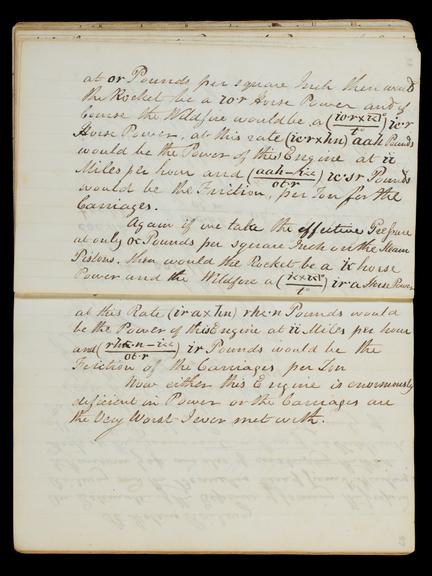 at or Pounds per square Inch then would
the Rocket be a ror Horse Power and of
Course the Wildfire would be a Horse Power, at this rate (icr × hn) aah Pounds
would be the Power of this Engine at ii
Miles per hour and (aah – kii / ot·r) Pounds
would be the Friction, per Ton for the
Carriages.
Again if we take the effective Pressure
at only oc Pounds per square Inch on the Steam
Pistons. then would the Rocket be a ik horse
Power and the Wildfire a ir a Horse Power
at this Rate (ir a × hn) rhe·n Pounds would
be the Power of this Engine at ii Miles per hour
and ir Pounds would be the
Friction of the Carriages per Ton
Now either this Engine is enormously
deficient in Power or the Carriages are
the Very Worst I ever met with.